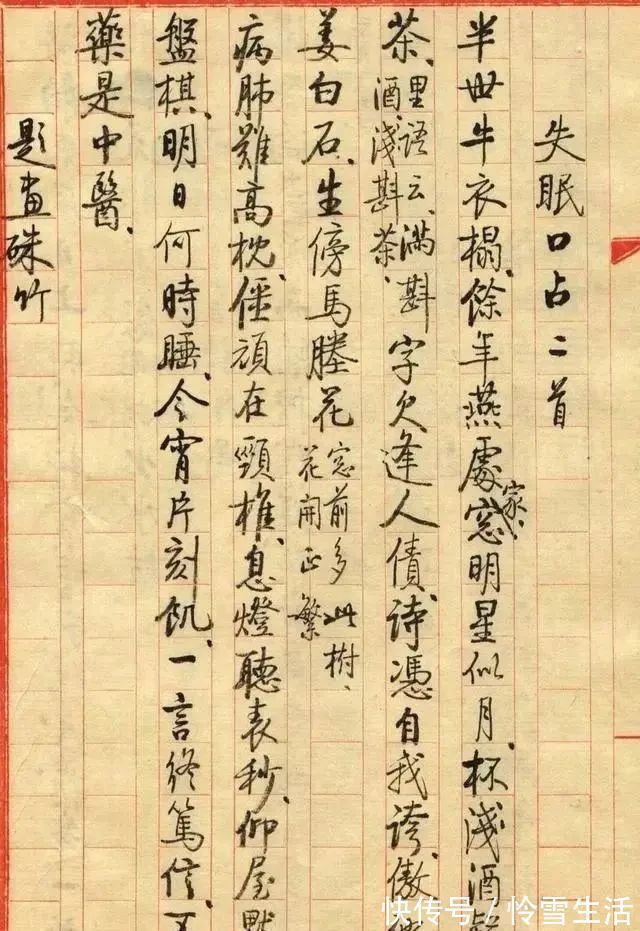 失眠口占二首
半世牛衣榻、餘年燕處家、窓明星似月、杯淺酒
茶、里語云、滿斟酒、淺斟茶、字欠逢人債、詩憑自我誇、傲
姜白石、生傍馬塍花窓前多此樹、花開正繁
病肺難高枕、僵頑在頸椎、息燈聽表秒、仰屋默
盤棋、明日何時睡、今宵片刻飢、一言終篤信、不
藥是中醫、
題畫硃竹
快传号 / 怜雪生活